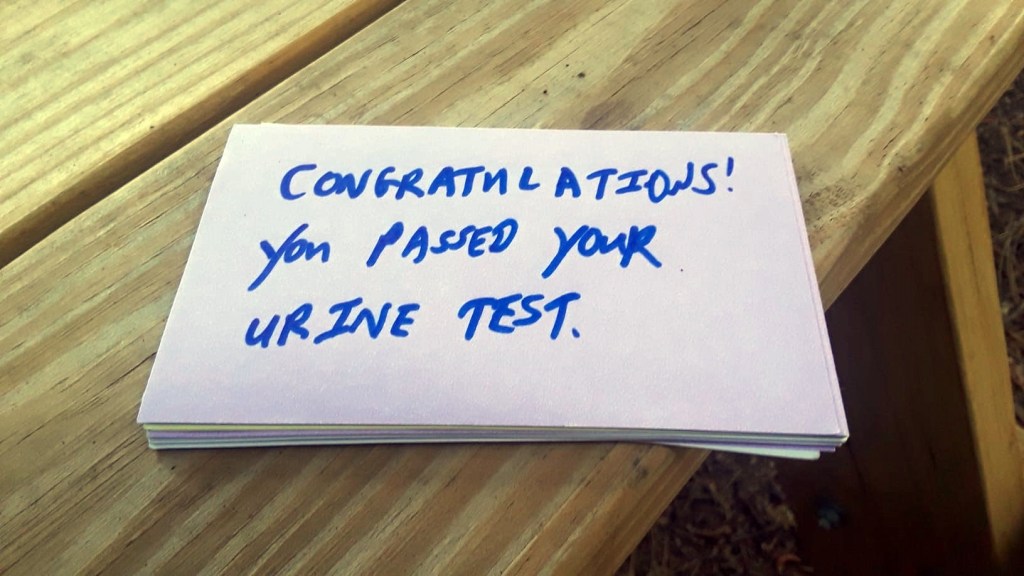 CONGRATULATIONS!
You PASSED YOUR
URINE TEST.